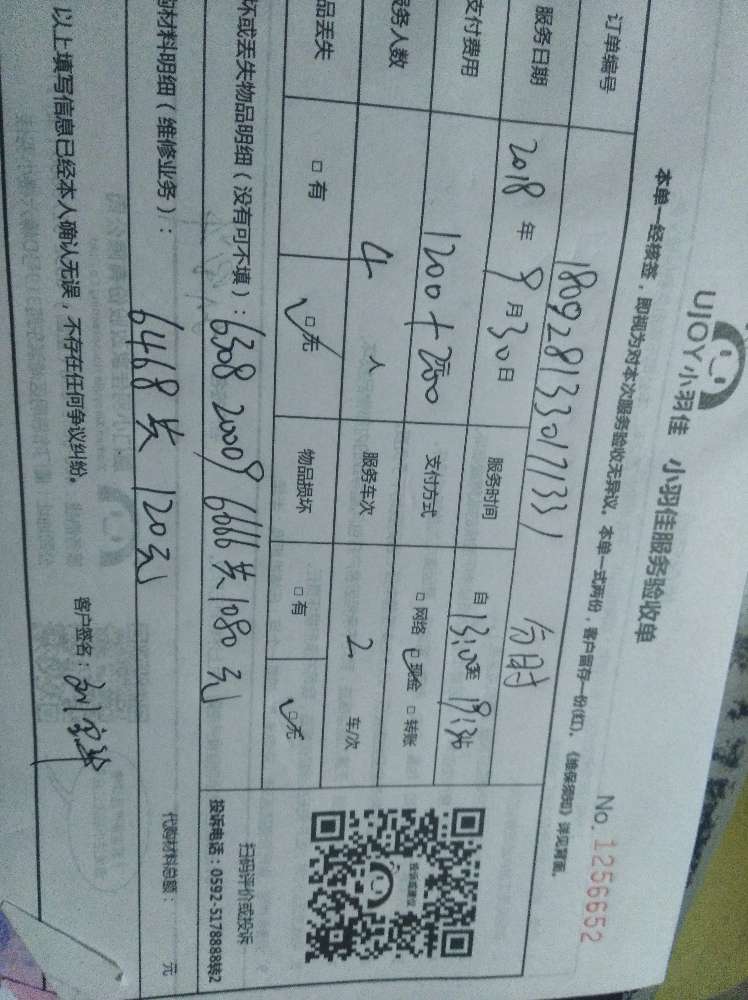 UJOY小羽佳 小羽佳服务验收单
No. 1256652
本单一经核签，即视为对本次服务验收无异议。本单一式两份，客户留存一份(红)。《维保须知》详见背面。
订单编号 180928133017331 分时
服务日期 2018 年 9 月 30 日 服务时间 自 13:0 至 19:36
支付费用 1200+200 支付方式 □ 网络 ☑ 现金 □ 转账
服务人数 4 人 服务车次 2 车/次
品丢失 □ 有 ☑ 无 物品损坏 □ 有 ☑ 无
坏或丢失物品明细（没有可不填）：6308 20009 6666 共1080元
扫码评价或投诉
投诉电话：0592-5178888转2
购材料明细（维修业务）： 6468 共 120元
代购材料总额： 元
以上填写信息已经本人确认无误，不存在任何争议纠纷。 客户签名：